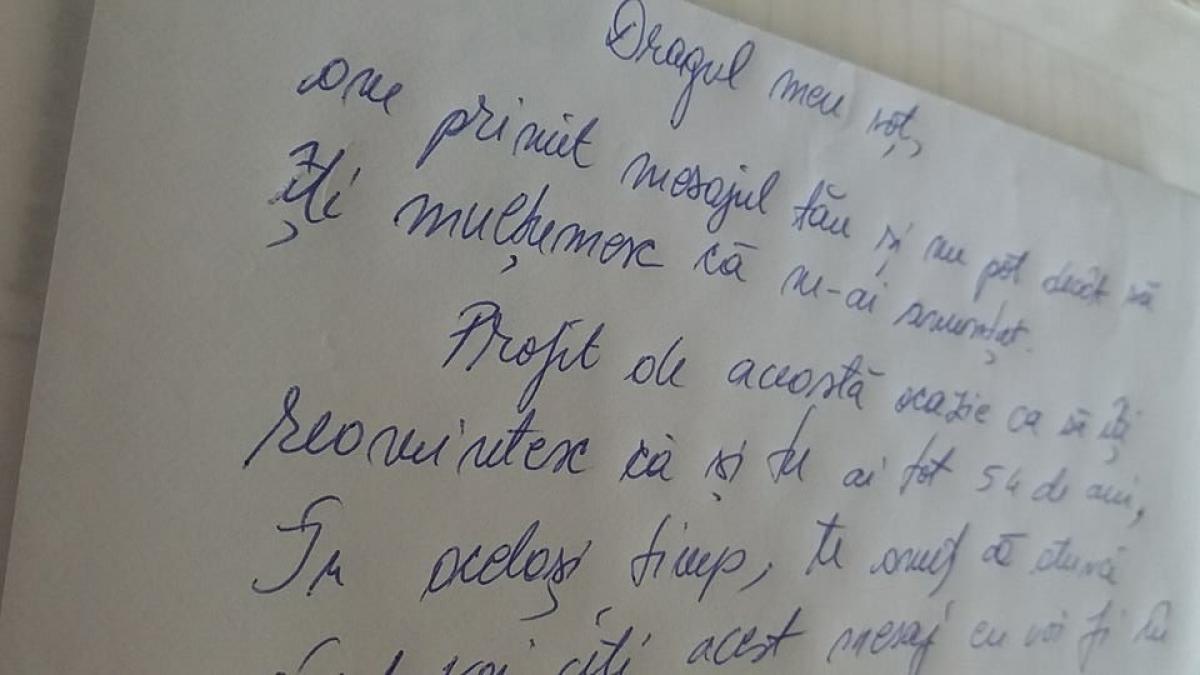 Dragul meu soț,
am primit mesajul tău și nu pot decât să
îți mulțumesc că m-ai anunțat.
Profit de această ocazie ca să îți
reamintesc că și tu ai tot 54 de ani,
În același timp, te anunț că atunci
voi citi acest mesaj eu voi fi la